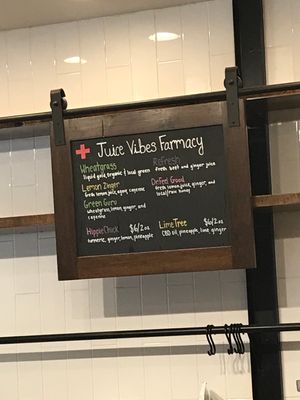 Juice Vibes Farmacy
Wheatgrass
liquid gold, organic & local green
Lemon Zinger
fresh lemon juice, agave, cayenne
Green Guru
wheatgrass, lemon, ginger, and
cayenne
Refresh
fresh beet and ginger juice
DeFed Good
fresh lemon juice, ginger, and
local raw honey
HippieChick $6/2oz
turmeric, ginger, lemon, pineapple
LimeTree $6/2oz
CBD oil, pineapple, lime, ginger